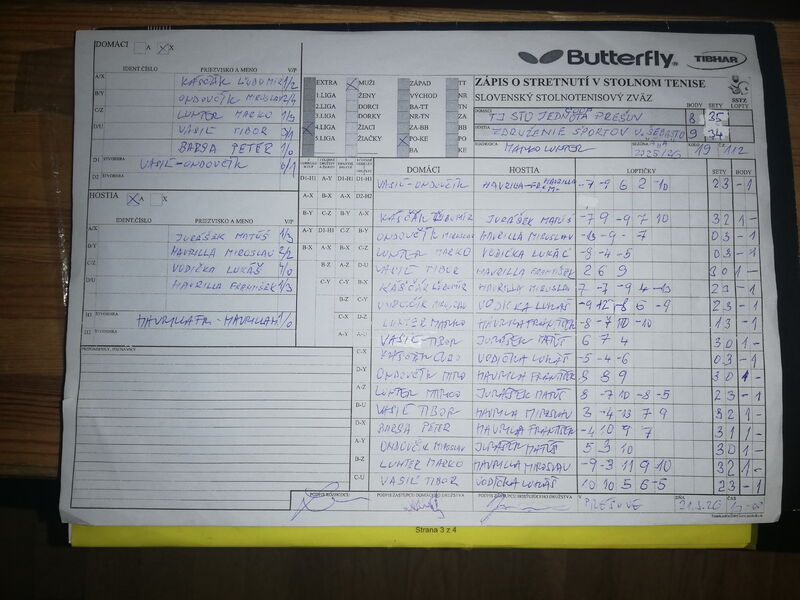 DOMÁCI A X
Butterfly TIBHAR
IDENT.ČÍSLO PRIEZVISKO A MENO V/P
A/X KAŠČÁK ĽUBOMÍR 1/2
B/Y ONDOVČÍK MIROSLAV
C/Z LUNTER MARKO
D/U VASIĽ TIBOR
BARŠA PETER 1/0
D1 ŠTVORHRA VASIĽ-ONDOVČÍK 0/1
D2 ŠTVORHRA
HOSTIA A X
IDENT.ČÍSLO PRIEZVISKO A MENO V/P
A/X JURÁŠEK MATÚŠ 1/3
B/Y HAVRILLA MIROSLAV 2/2
C/Z VODIČKA LUKÁŠ 4/0
D/U HAVRILLA FRANTIŠEK 1/3
H1 ŠTVORHRA HAVRILLA FR. - HAVRILLA M. 1/0
H2 ŠTVORHRA
PRIPOMIENKY, POZNÁMKY
EXTRA MUŽI ZÁPAD TT
1.LIGA ŽENY VÝCHOD NR
2.LIGA DORCI BA-TT TN
3.LIGA DORKY NR-TN ZA
4.LIGA ŽIACI ZA-BB BB
5.LIGA ŽIAČKY PO-KE PO
BA KE
ZÁPIS O STRETNUTÍ V STOLNOM TENISE
SLOVENSKÝ STOLNOTENISOVÝ ZVÄZ
SSTZ
BODY SETY LOPTY
DOMÁCI TJ STO JEDNOTA COOP PREŠOV 8 35
HOSTIA ZDRUŽENIE ŠPORTOV V. ŠEBASTO 9 34
ROZHODCA MARKO LUNTER SEZÓNA 2025/26 KOLO 19 Č. 112
DOMÁCI HOSTIA LOPTIČKY SETY BODY
VASIĽ-ONDOVČÍK HAVRILLA FR.-HAVRILLA M. -7 -9 6 2 -10 2 3 - 1
KAŠČÁK ĽUBOMÍR JURÁŠEK MATÚŠ -7 9 -9 7 10 3 2 1 -
ONDOVČÍK MIROSLAV HAVRILLA MIROSLAV -13 -9 -7 0 3 - 1
LUNTER MARKO VODIČKA LUKÁŠ -8 -4 -5 0 3 - 1
VASIĽ TIBOR HAVRILLA FRANTIŠEK 2 6 9 3 0 1 -
KAŠČÁK ĽUBOMÍR HAVRILLA MIROSLAV 7 -7 -9 4 -13 2 3 - 1
ONDOVČÍK MIROSLAV VODIČKA LUKÁŠ -9 12 -8 6 -9 2 3 - 1
LUNTER MARKO HAVRILLA FRANTIŠEK -8 -7 10 -10 1 3 - 1
VASIĽ TIBOR JURÁŠEK MATÚŠ 6 7 4 3 0 1 -
KAŠČÁK ĽUBO VODIČKA LUKÁŠ -5 -4 -6 0 3 - 1
ONDOVČÍK MIRO HAVRILLA FRANTIŠEK 8 8 9 3 0 1 -
LUNTER MARKO JURÁŠEK MATÚŠ 8 -7 10 -8 -5 2 3 - 1
VASIĽ TIBOR HAVRILLA MIROSLAV 3 -4 -13 7 9 3 2 1 -
BARŠA PETER HAVRILLA FRANTIŠEK -4 10 9 7 3 1 1 -
ONDOVČÍK MIROSLAV JURÁŠEK MATÚŠ 5 3 10 3 0 1 -
LUNTER MARKO HAVRILLA MIROSLAV -9 -3 11 9 10 3 2 1 -
VASIĽ TIBOR VODIČKA LUKÁŠ 10 10 5 -6 -5 2 3 - 1
PODPIS ROZHODCU PODPIS ZÁSTUPCU DOMÁCEHO DRUŽSTVA PODPIS ZÁSTUPCU HOSŤUJÚCEHO DRUŽSTVA V PREŠOVE DŇA 21.3.26 ČAS
Strana 3 z 4